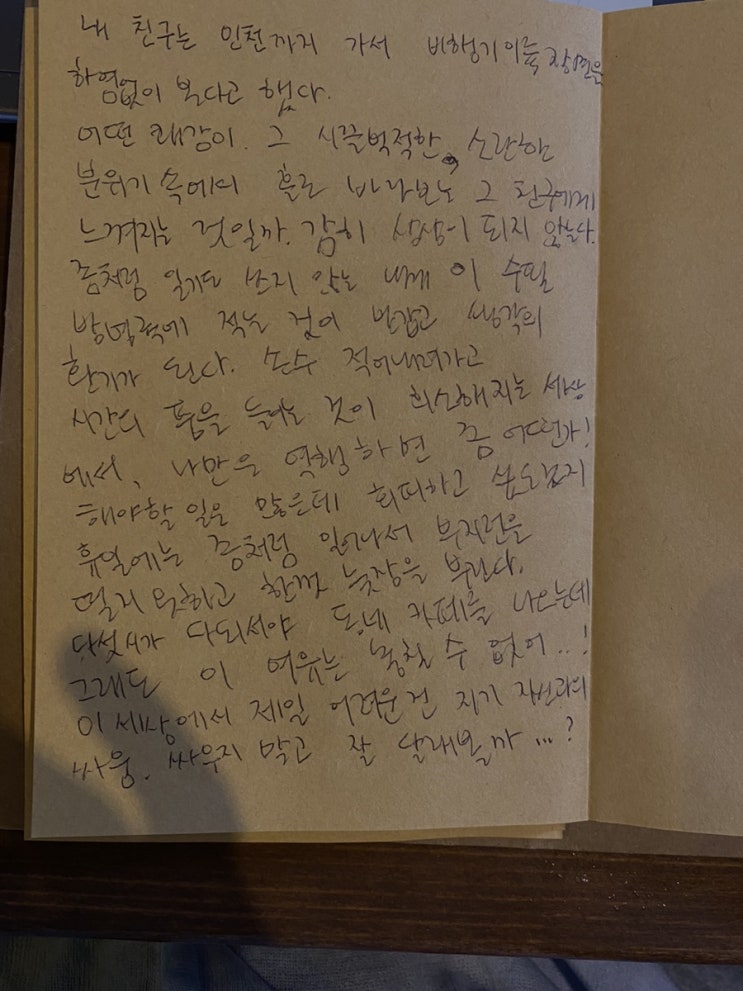 내 친구는 인천까지 가서 비행기 이륙 장면을
하염없이 본다고 했다.
어떤 쾌감이. 그 시끌벅적한, 소란한
분위기 속에의 홀로 바라보는 그 친구에게
느껴지는 것일까. 감히 상상이 되지 않는다.
좀처럼 일기도 쓰지 않는 내게 이 수필
방명록에 적는 것이 반갑고 생각의
환기가 된다. 손수 적어내려가고
시간의 품을 들이는 것이 희소해지는 세상
에서, 나만은 역행하면 좀 어떤가!
해야할 일은 많은데 회피하고 싶도록지
휴일에는 좀처럼 일어나서 부지런을
떨지 못하고 한껏 늦장을 부린다.
다섯시가 다되서야 동네 카페를 나오는데
그래도 이 여유는 놓칠 수 없어..!
이 세상에서 제일 어려운건 자기 자신과의
싸움. 싸우지 말고 잘 달래볼까...?